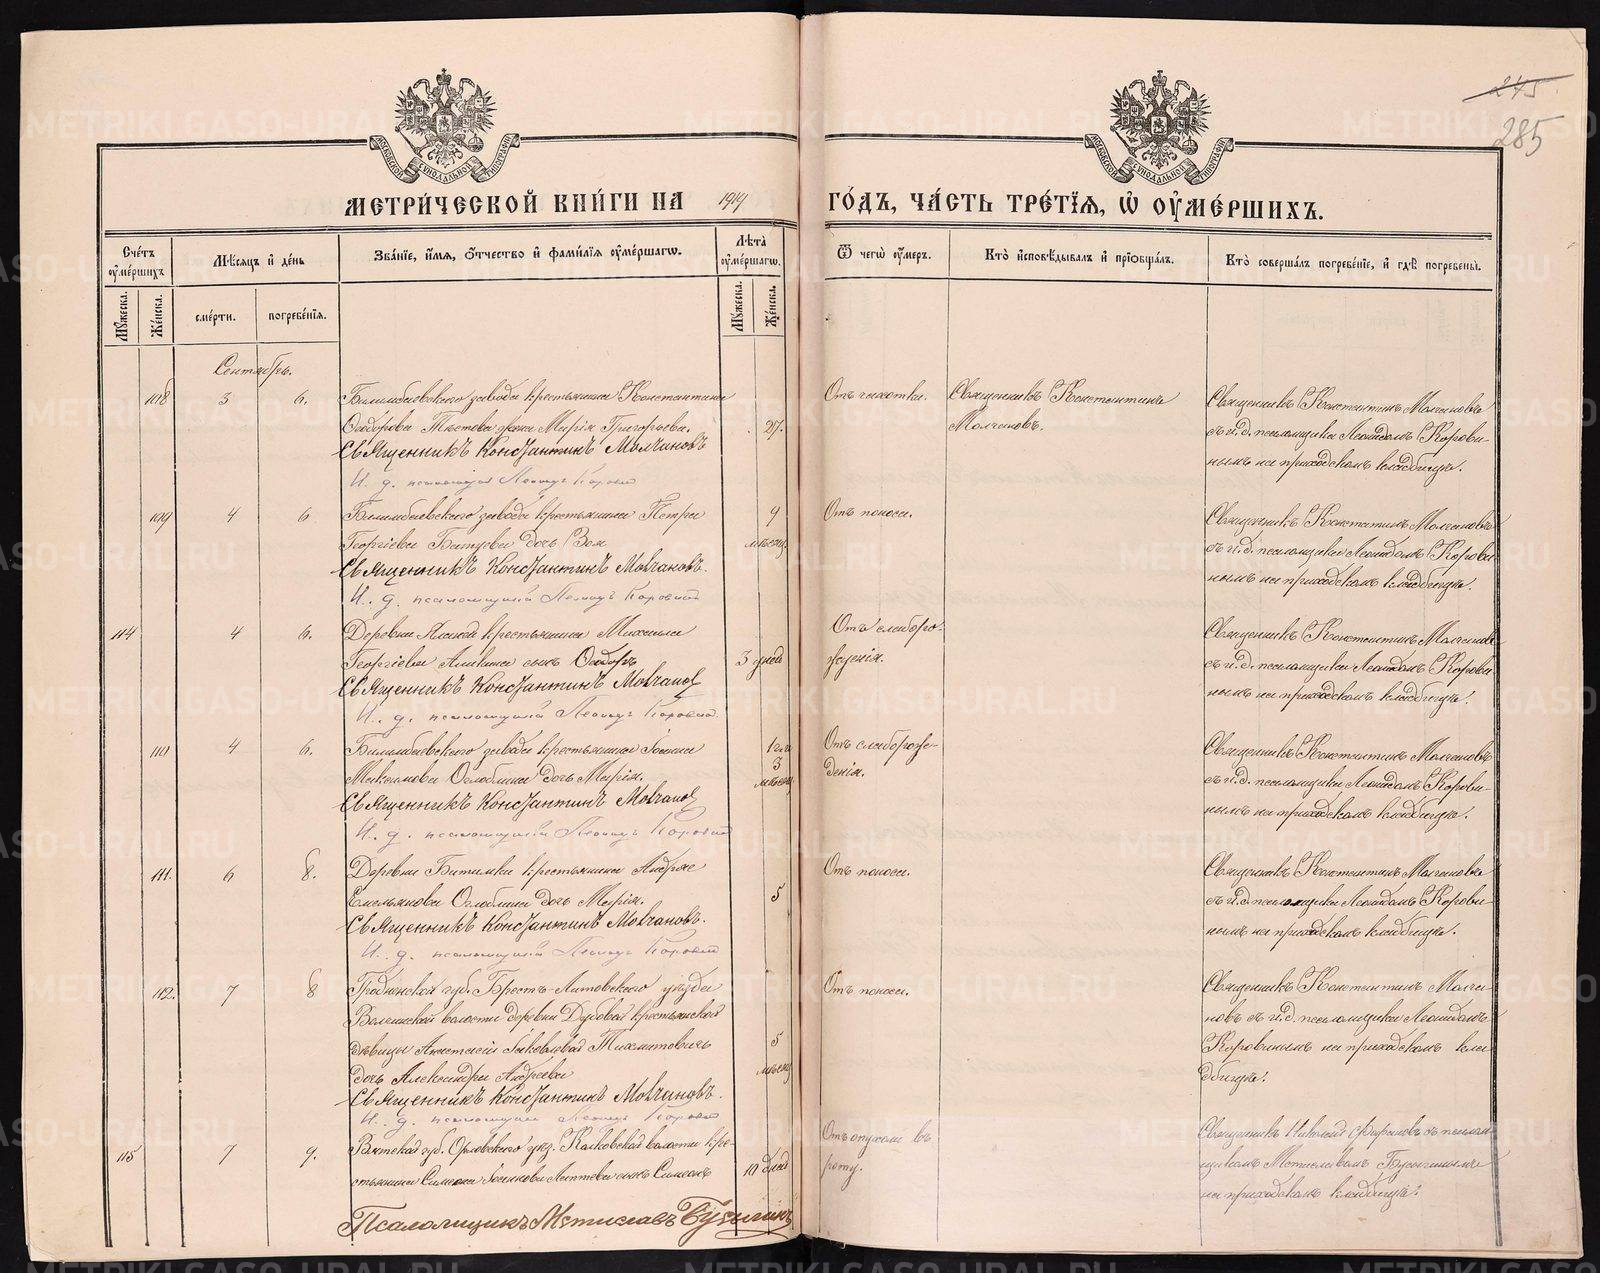 245
285
МЕТРИ́ЧЕСКОЙ КНИ́ГИ НА 1919 ГО́ДЪ, ЧА́СТЬ ТРЕ́ТІѦ, Ѡ ОУМЕ́РШИХЪ.
Сче́тъ оуме́ршихъ
Мѣ́сѧцъ и де́нь
Зва́ніе, и́мѧ, о́тчество и фами́лія оуме́ршагѡ.
Лѣта̀ оуме́ршагѡ.
Ѿ чегѡ̀ оу́меръ.
Кто̀ исповѣ́дывалъ и пріобща́лъ.
Кто̀ соверша́лъ погребе́ніе, и гдѣ̀ погребены̀.
Му́жеска.
Же́нска.
сме́рти.
погребе́нія.
Му́жеска.
Же́нска.
Сентябрь.
108 3 6. Билимбаевскаго завода крестьянина Константина
Ѳедорова жена Марія Григорьева. 27.
Священникъ Константинъ Молчановъ
И. д. псаломщика Леонидъ Коровин
Отъ чахотки.
Священникъ Константинъ
Молчановъ.
Священникъ Константинъ Молчановъ
съ и.д. псаломщика Леонидомъ Корови-
нымъ на приходскомъ кладбищѣ.
109 4 6 Билимбаевскаго завода крестьянина Петра 9
Георгіева дочь Зоя мѣсяц.
Священникъ Константинъ Молчановъ.
И. д. псаломщика Леонид Коровин
Отъ поноса.
Священникъ Константинъ Молчановъ
съ и.д. псаломщика Леонидомъ Корови-
нымъ на приходскомъ кладбищѣ.
114 4 6. Деревни крестьянина Михаила
Георгіева сынъ Ѳедоръ 3 дней
Священникъ Константинъ Молчанов
И. д. псаломщика Леонид Коровин
Отъ слаборо-
жденія.
Священникъ Константинъ Молчановъ
съ и.д. псаломщика Леонидомъ Корови-
нымъ на приходскомъ кладбищѣ.
110 4 6. Билимбаевскаго завода крестьянина Іоанна 1 год
Максимова Оглоблина дочь Марія. 3 мѣсяц
Священникъ Константинъ Молчанов
И. д. псаломщика Леонидъ Коровин
Отъ слаборож-
денія.
Священникъ Константинъ Молчановъ
съ и.д. псаломщика Леонидомъ Корови-
нымъ на приходскомъ кладбищѣ.
111. 6 8. Деревни Битимки крестьянина Андрея
Емельянова Оглоблина дочь Марія. 5
Священникъ Константинъ Молчановъ.
И. д. псаломщика Леонид Коровин
Отъ поноса.
Священникъ Константинъ Молчановъ
съ и.д. псаломщика Леонидомъ Корови-
нымъ на приходскомъ кладбищѣ.
112. 7 8 Гродненской губ. Брестъ-Литовскаго уѣзда
волости деревни Дубовой крестьянской
дѣвицы Анастасіи Яковлевой 5
дочь Александра Андреева мѣсяц
Священникъ Константинъ Молчановъ.
И. д. псаломщика Леонидъ Коровин
Отъ поноса.
Священникъ Константинъ Молча-
новъ съ и.д. псаломщика Леонидомъ
Коровинымъ на приходскомъ клад-
бищѣ.
115 7 9. Вятской губ. Орловскаго уѣз. волости кре-
стьянина Симеона Лаптева сынъ Симеонъ 10 дней
Псаломщикъ Мстиславъ Бусыгинъ
Отъ опухоли въ
роту.
Священникъ Николай съ псалом-
щикомъ Мстиславомъ Бусыгинымъ
на приходскомъ кладбищѣ.
METRIKI.GASO-URAL.RU